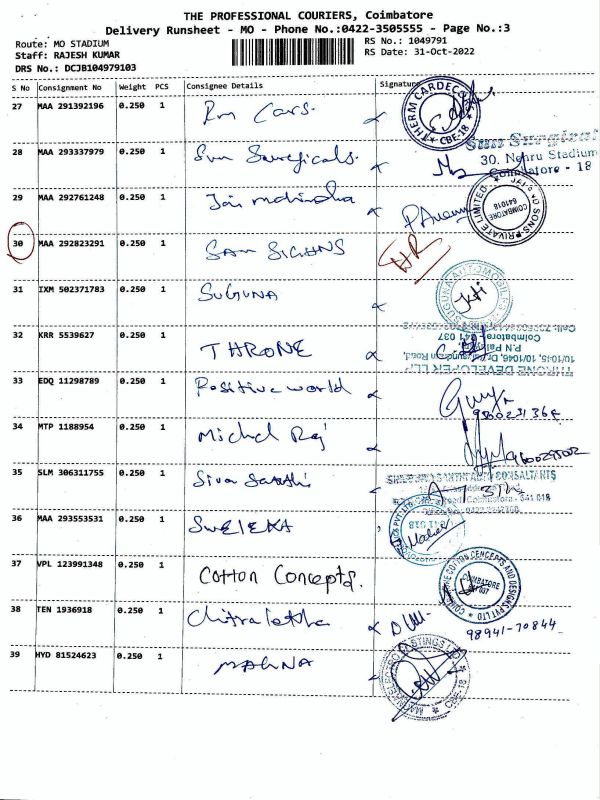 THE PROFESSIONAL COURIERS, Coimbatore
Delivery Runsheet - MO - Phone No.:0422-3505555 - Page No.:3
Route: MO STADIUM
RS No.: 1049791
Staff: RAJESH KUMAR
RS Date: 31-Oct-2022
DRS No.: DCJB104979103
S No Consignment No Weight PCS Consignee Details Signature
27 MAA 291392196 0.250 1 Rm Cars.
THERM CARDECO CBE-18
28 MAA 293337979 0.250 1 Sun Surgicals.
Sun Surgical
30, Nehru Stadium
Coimbatore - 18
29 MAA 292761248 0.250 1 Jai mahindra
SONS PRIVATE LIMITED COIMBATORE 641018
30 MAA 292823291 0.250 1 SAM SIGHNS
31 IXM 502371783 0.250 1 SUGUNA
SUGUNA AUTOMOBILES
32 KRR 5539627 0.250 1 THRONE
THRONE DEVELOPER LLP
10/1045, 10/1046,
Coimbatore - 641 037
33 EDQ 11298789 0.250 1 Positive world
34 MTP 1188954 0.250 1 Michel Raj
35 SLM 306311755 0.250 1 Siva Sakthi
CONSALTANTS
Coimbatore - 641 018
36 MAA 293553531 0.250 1 SWELEKA
37 VPL 123991348 0.250 1 Cotton Concepts.
COTTON CONCEPTS AND DESIGNS PVT LTD COIMBATORE
38 TEN 1936918 0.250 1 Chitralekha
98941-70844
39 HYD 81524623 0.250 1 MAGNA
CBE-18